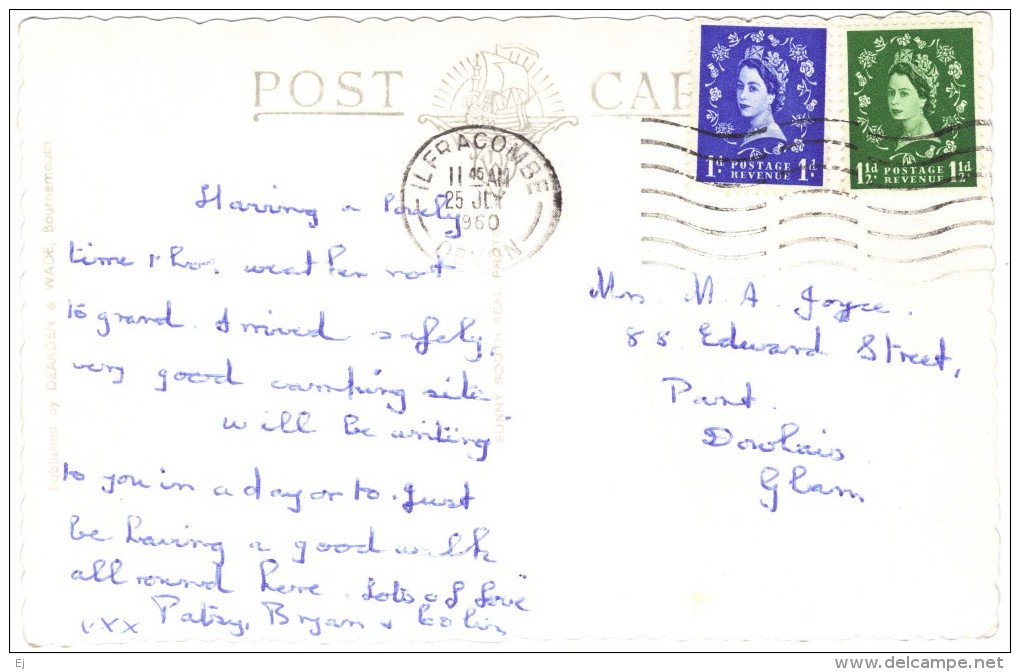 POST CAR
ILFRACOMBE
11 45 AM
25 JLY
1960
DEVON
1D 1D
POSTAGE
REVENUE
1½D 1½D
POSTAGE
REVENUE
Published by DEARDEN & WADE, Bournemouth
SUNNY SOUTH REAL PHOT
Having a lovely
time weather not
to grand. Arrived safely,
very good camping site
will be writing
to you in a day or to. Just
be having a good walk
all round here. Lots of Love
Patsy, Bryan & Colin
xxx
Mrs. M. A. Joyce.
88 Edward Street,
Pant.
Dowlais.
Glam
Ej
http://www.delcampe.net